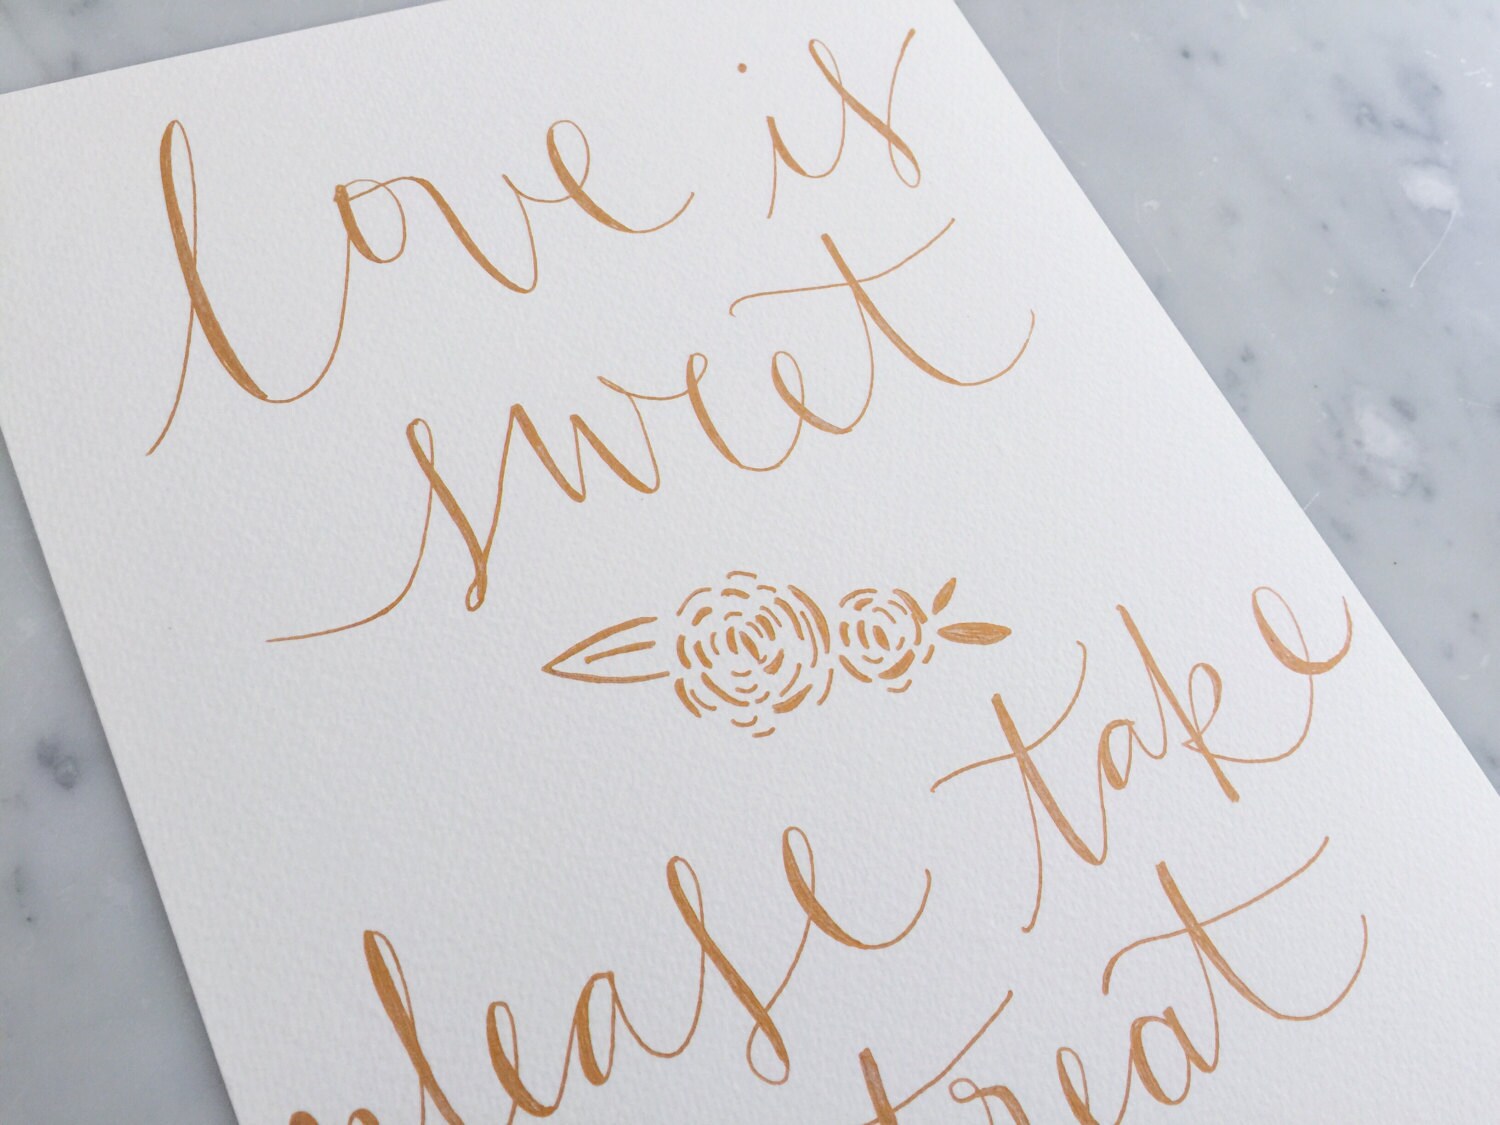 love is
sweet
please take
treat